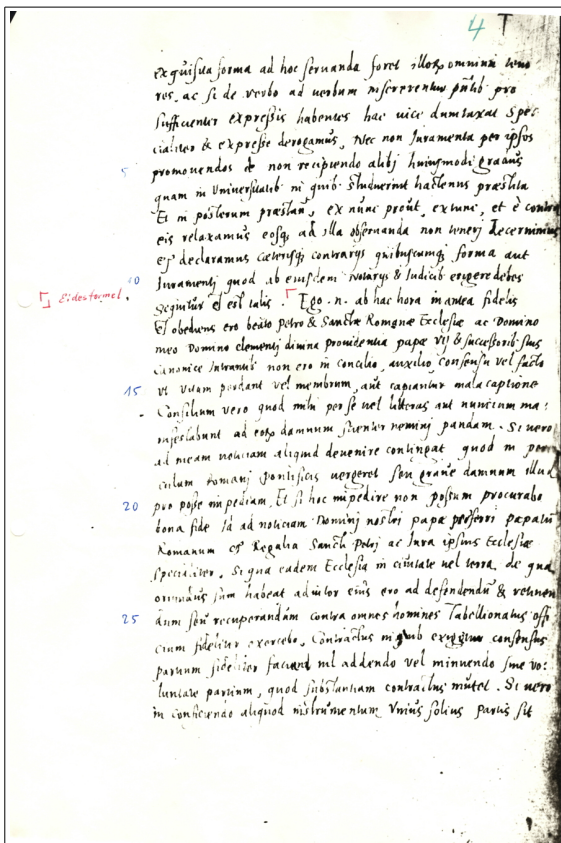 4
exquisita forma ad hoc seruanda foret illorꝫ omnium teno
res, ac si de verbo ad uerbum insererentur pñtib pro
sufficienter expressis habentes hac uice dumtaxat spe:
cialiter & expresse derogamus, Nec non Iuramenta per ipsos
5 promouendos de non recipiendo alibj huiusmodi gradus
quam in Vniuersitatib in quib studuerint hactenus præstita
Et in posterum præstan, ex nunc prout, extunc, et è contra
eis relaxamus eosqꝫ ad illa obseruanda non tenerj decernimus
et declaramus cæterisqꝫ contrarijs quibuscumqꝫ forma aut
10 Iuramentj quod ab eiusdem Notarijs & Iudicib exigere debes
Eidesformel. sequitur et est talis. Ego .n. ab hac hora in antea fidelis
Et obediens ero beato Petro & Sanctæ Romanæ Ecclesiæ ac Domino
meo Domino clementj diuina prouidentia papæ VIJ & successorib suis
canonice intrantib non ero in concilio, auxilio consensu vel facto
15 vt Vitam perdant vel membrum, aut capiantur mala captione
Consilium vero quod mihi per se uel litteras aut nuncium ma:
nifestabunt ad eorꝫ damnum scienter neminj pandam. Si uero
ad meam noticiam aliquid deuenire contingat quod in peri
culum Romanj Pontificis uergeret seu graue damnum illud
20 pro posse impediam, Et si hoc impedire non possum procurabo
bona fide id ad noticiam Dominj nostri papæ perferri papatū
Romanum et Regalia Sanctj Petrj ac Iura ipsius Ecclesiæ
specialiter. Si qua eadem Ecclesia in ciuitate uel terra, de qua
oriundus sum habeat adiutor eius ero ad defendendū & retinen
25 dum seu recuperandum contra omnes homines Tabellionatus offi
cium fideliter exercebo, Contractus in quib exigitur consensus
partium fideliter faciam nil addendo vel minuendo sine vo:
luntate partium, quod substantiam contractus mutet. Si uero
in conficiendo aliquod instrumentum Vnius solius partis sit